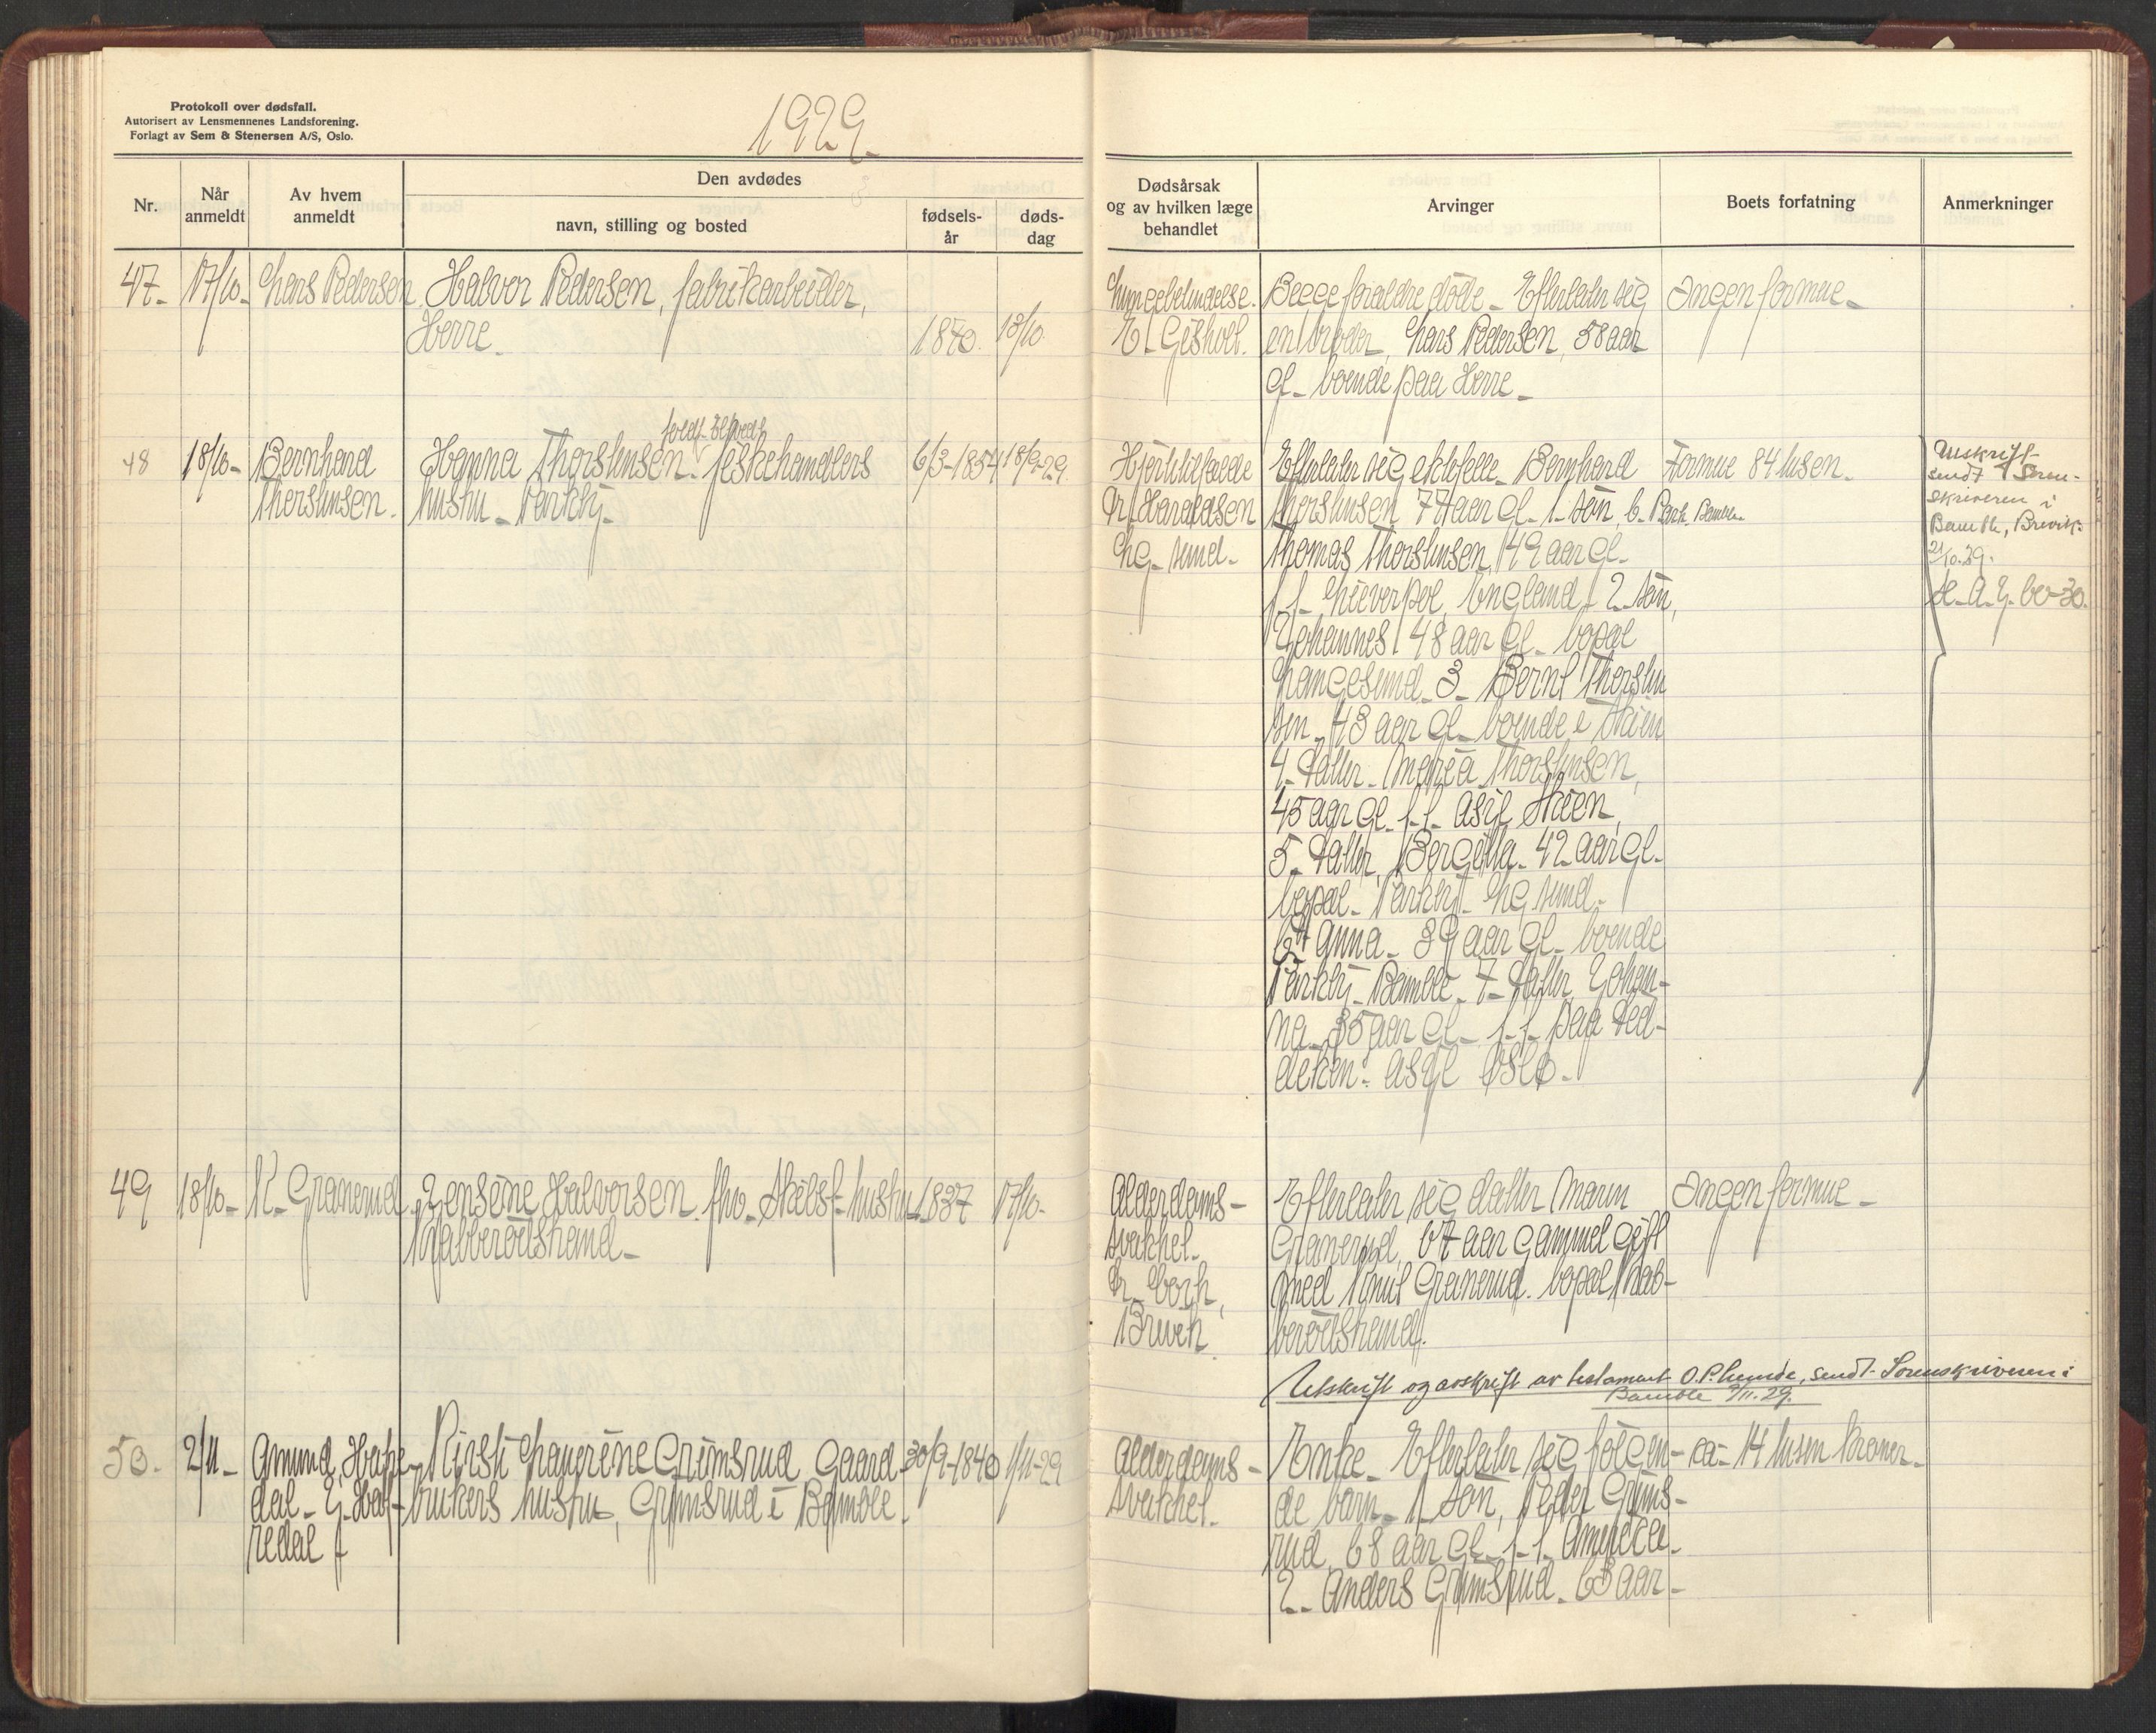 Protokoll over dødsfall.
Autorisert av Lensmennenes Landsforening.
Forlagt av Sem & Stenersen A/S, Oslo.
1929
Nr.
Når anmeldt
Av hvem anmeldt
Den avdødes
navn, stilling og bosted
fødsels-år
døds-dag
Dødsårsak og av hvilken læge behandlet
Arvinger
Boets forfatning
Anmerkninger
47- 17/10- Lars Pedersen Halvor Pedersen, fabrikarbeider,
Herre. 1870. 13/10.
Lungebetændelse.
Begge forældre døde. Efterlater sig
en broder, Lars Pedersen, 58 aar
gl. boende paa Herre.
Ingen formue
48 18/10- Bernhard
Thorstensen.
Hanna Thorstensen. fiskehandlers
hustru
6/3-1854
Hjertetilfælde
Dr. Haraldsen
Lg. sund.
Efterlater sig ektefelle Bernhard
Thorstensen 77 aar gl. 1. søn, b. Bamble.
Thomas Thorstensen, 49 aar gl.
f.t. Liverpol, England, 2. søn,
Johannes 48 aar gl. bopæl
Langesund. 3. Bernt Thorsten
sen. 43 aar gl. boende i Skien
4. datter. Thorstensen,
45 aar gl. f.t. Asyl Skien,
5. datter, 42 aar gl.
bopæl. Lg. sund.
6. Anna. 39 aar gl. boende
Bamble. 7. datter Johan-
na. 35 aar gl. f.t. paa Ded-
deken: asyl Oslo.
Formue 84 tusen.
Utskrift
sendt Soren-
skriveren i
Bamble, Brevik.
21/10.29.
49 18/10- K. Granerud Jensine Halvorsen. fhv. hustru 1837 17/10-
Alderdoms-
svakhet.
Dr. Borch,
Brevik.
Efterlater sig datter Maren
Granerud, 67 aar gammel gift
med Knut Granerud. bopæl Krab-
berødstrand.
Ingen formue
Utskrift og avskrift av testament O. P. Lunde, sendt Sorenskriveren i
Bamble 9/11.29.
50. 2/11- Amund Hafre-
dal - J. Haf-
redal
Kirsti Laurine Grimsrud Gaard-
brukers hustru, Grimsrud i Bamble.
30/9-1840 1/11-29
Alderdoms-
svakhet.
Enke. Efterlater sig følgen-
de barn. 1. søn, Peder Grims-
rud, 68 aar gl. f.t. Amerika.
2. Anders Grimsrud. 65 aar
ca. 14 tusen kroner.